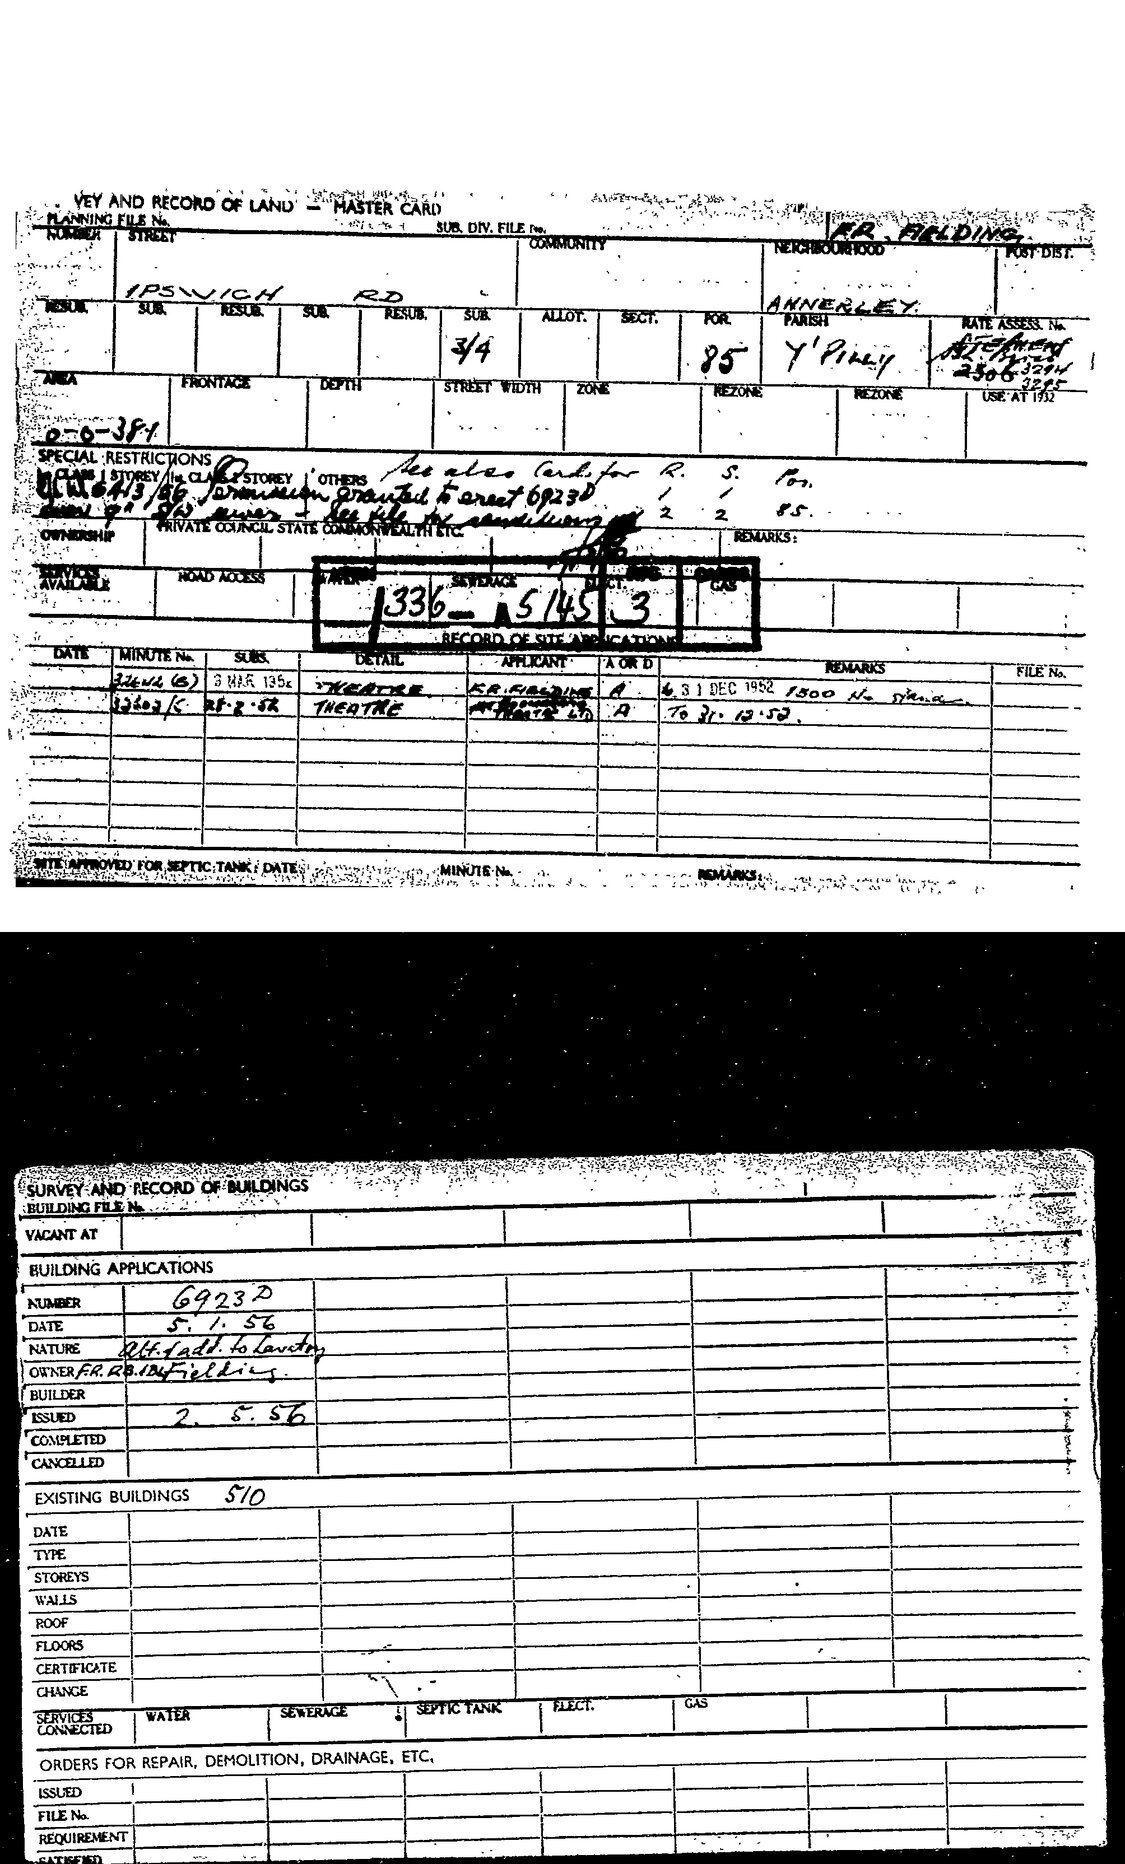 VEY AND RECORD OF LAND — MASTER CARD
PLANNING FILE No. SUB. DIV. FILE No. F.R. FIELDING.
NUMBER STREET COMMUNITY NEIGHBOURHOOD POST DIST.
IPSWICH RD ANNERLEY.
RESUB. SUB. RESUB. SUB. RESUB. SUB. ALLOT. SECT. POR. PARISH RATE ASSESS. No.
3/4 85 Y'Pilly
2506 3294
3295
AREA FRONTAGE DEPTH STREET WIDTH ZONE REZONE REZONE USE AT 1932
0-0-38.1
SPECIAL RESTRICTIONS
CLASS 1 STOREY CLASS 2 STOREY OTHERS See also Cards for R. S. Por.
Permission granted to erect 6923D 1 1
sewer - see file for conditions 2 2 85.
OWNERSHIP PRIVATE COUNCIL STATE COMMONWEALTH ETC. REMARKS:
SERVICES AVAILABLE ROAD ACCESS WATER SEWERAGE ELECT. GAS
1336 — A 5145 3
RECORD OF SITE APPLICATIONS
DATE MINUTE No. SUBS. DETAIL APPLICANT A OR D REMARKS FILE No.
3 MAR 195 THEATRE F.R. FIELDING A 31 DEC 1952 1500
28.2.52 THEATRE THEATRE LTD A To 31.12.52.
SITE APPROVED FOR SEPTIC TANK: DATE MINUTE No. REMARKS:
SURVEY AND RECORD OF BUILDINGS
BUILDING FILE No.
VACANT AT
BUILDING APPLICATIONS
NUMBER 6923D
DATE 5.1.56
NATURE Alt. & add. to Lavatory
OWNER F.R. Fielding.
BUILDER
ISSUED 2. 5. 56
COMPLETED
CANCELLED
EXISTING BUILDINGS 510
DATE
TYPE
STOREYS
WALLS
ROOF
FLOORS
CERTIFICATE
CHANGE
SERVICES CONNECTED WATER SEWERAGE SEPTIC TANK ELECT. GAS
ORDERS FOR REPAIR, DEMOLITION, DRAINAGE, ETC.
ISSUED
FILE No.
REQUIREMENT
SATISFIED